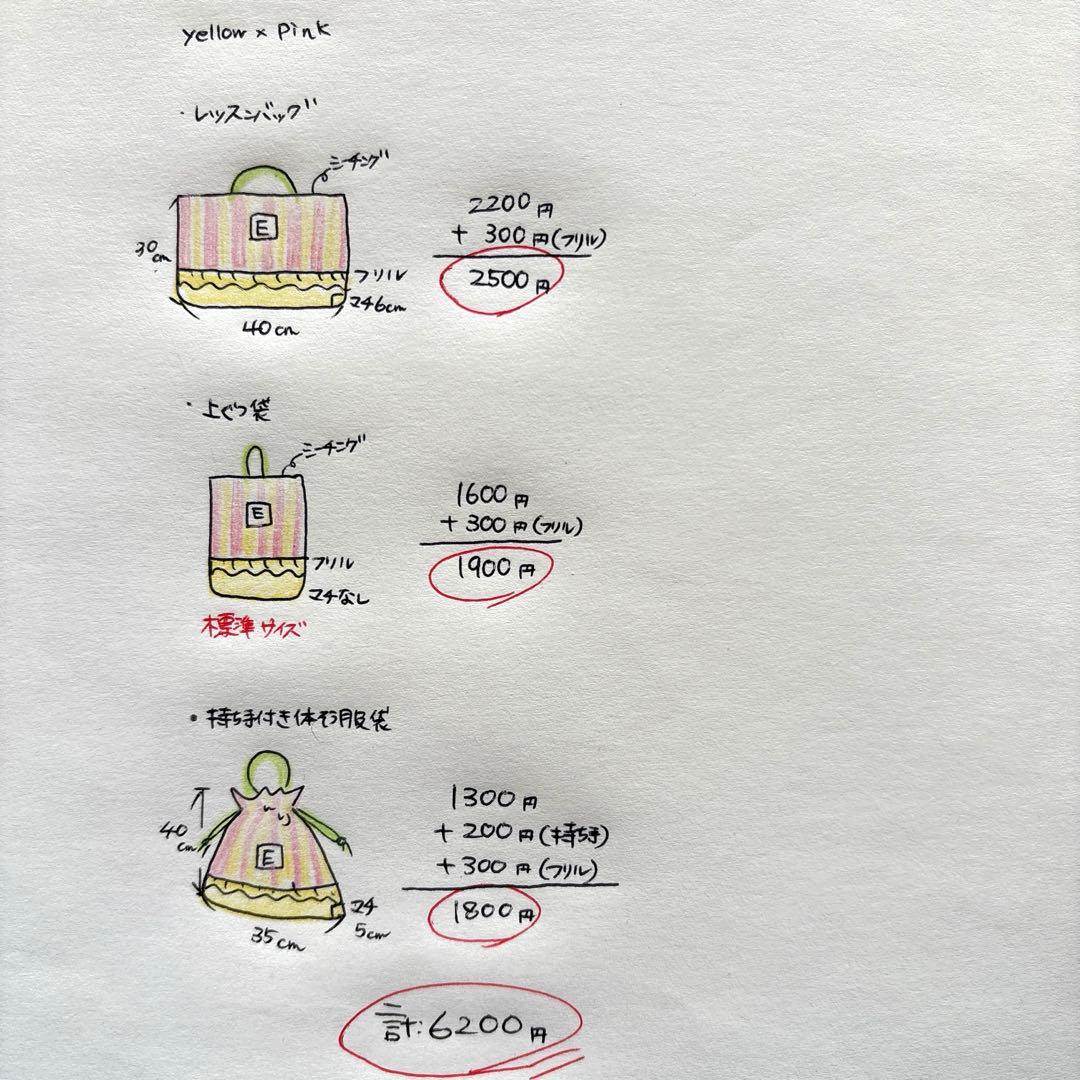 yellow × pink
・レッスンバッグ
ミーチング
E
30cm
フリル
マチ6cm
40cm
2200円
+ 300円(フリル)
2500円
・上ぐつ袋
ミーチング
E
フリル
マチなし
標準サイズ
1600円
+300円(フリル)
1900円
・持ち手付き体そう服袋
40cm
E
マチ
5cm
35cm
1300円
+200円(持ち手)
+300円(フリル)
1800円
計:6200円